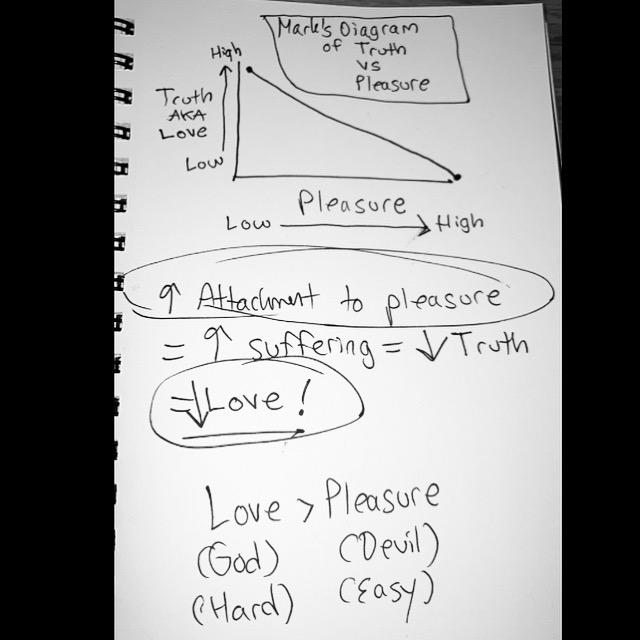 Mark's Diagram
of Truth
vs
Pleasure
High
Truth
AKA
Love
Low
Pleasure
Low → High
↑ Attachment to pleasure
= ↑ suffering = ↓ Truth
= ↓ Love!
Love > Pleasure
(God) (Devil)
(Hard) (Easy)